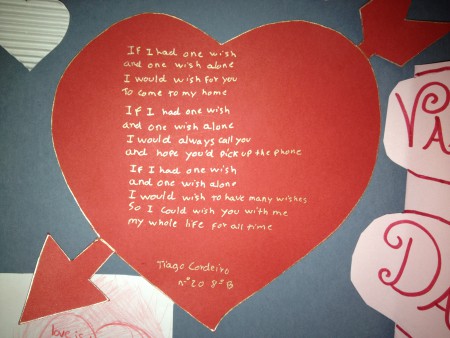 If I had one wish
and one wish alone
I would wish for you
To come to my home
If I had one wish
and one wish alone
I would always call you
and hope you'd pick up the phone
If I had one wish
and one wish alone
I would wish to have many wishes
So I could wish you with me
my whole life for all time
Tiago Cordeiro
nº20 8ºB
VA
DA
love is